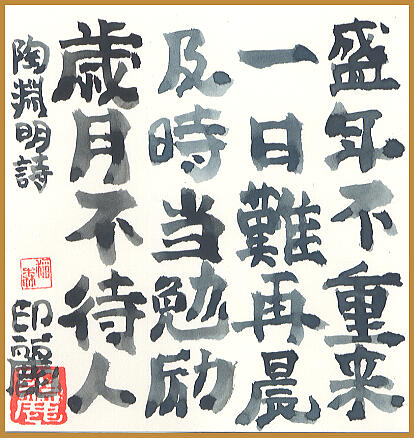 盛年不重来
一日難再晨
及時当勉励
歳月不待人
陶淵明詩
印麗